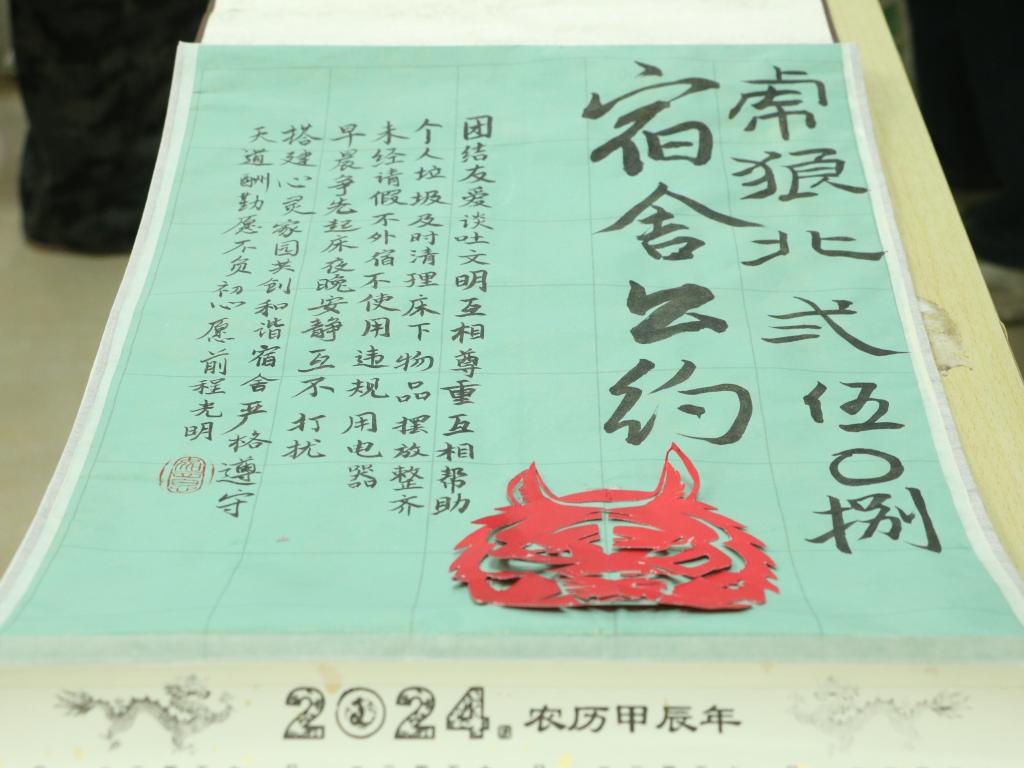 虎狼北弍伍〇捌
宿舍公约
团结友爱谈吐文明互相尊重互相帮助
个人垃圾及时清理床下物品摆放整齐
未经请假不外宿不使用违规用电器
早晨争先起床夜晚安静互不打扰
搭建心灵家园共创和谐宿舍严格遵守
天道酬勤愿不负初心愿前程光明
2024.农历甲辰年